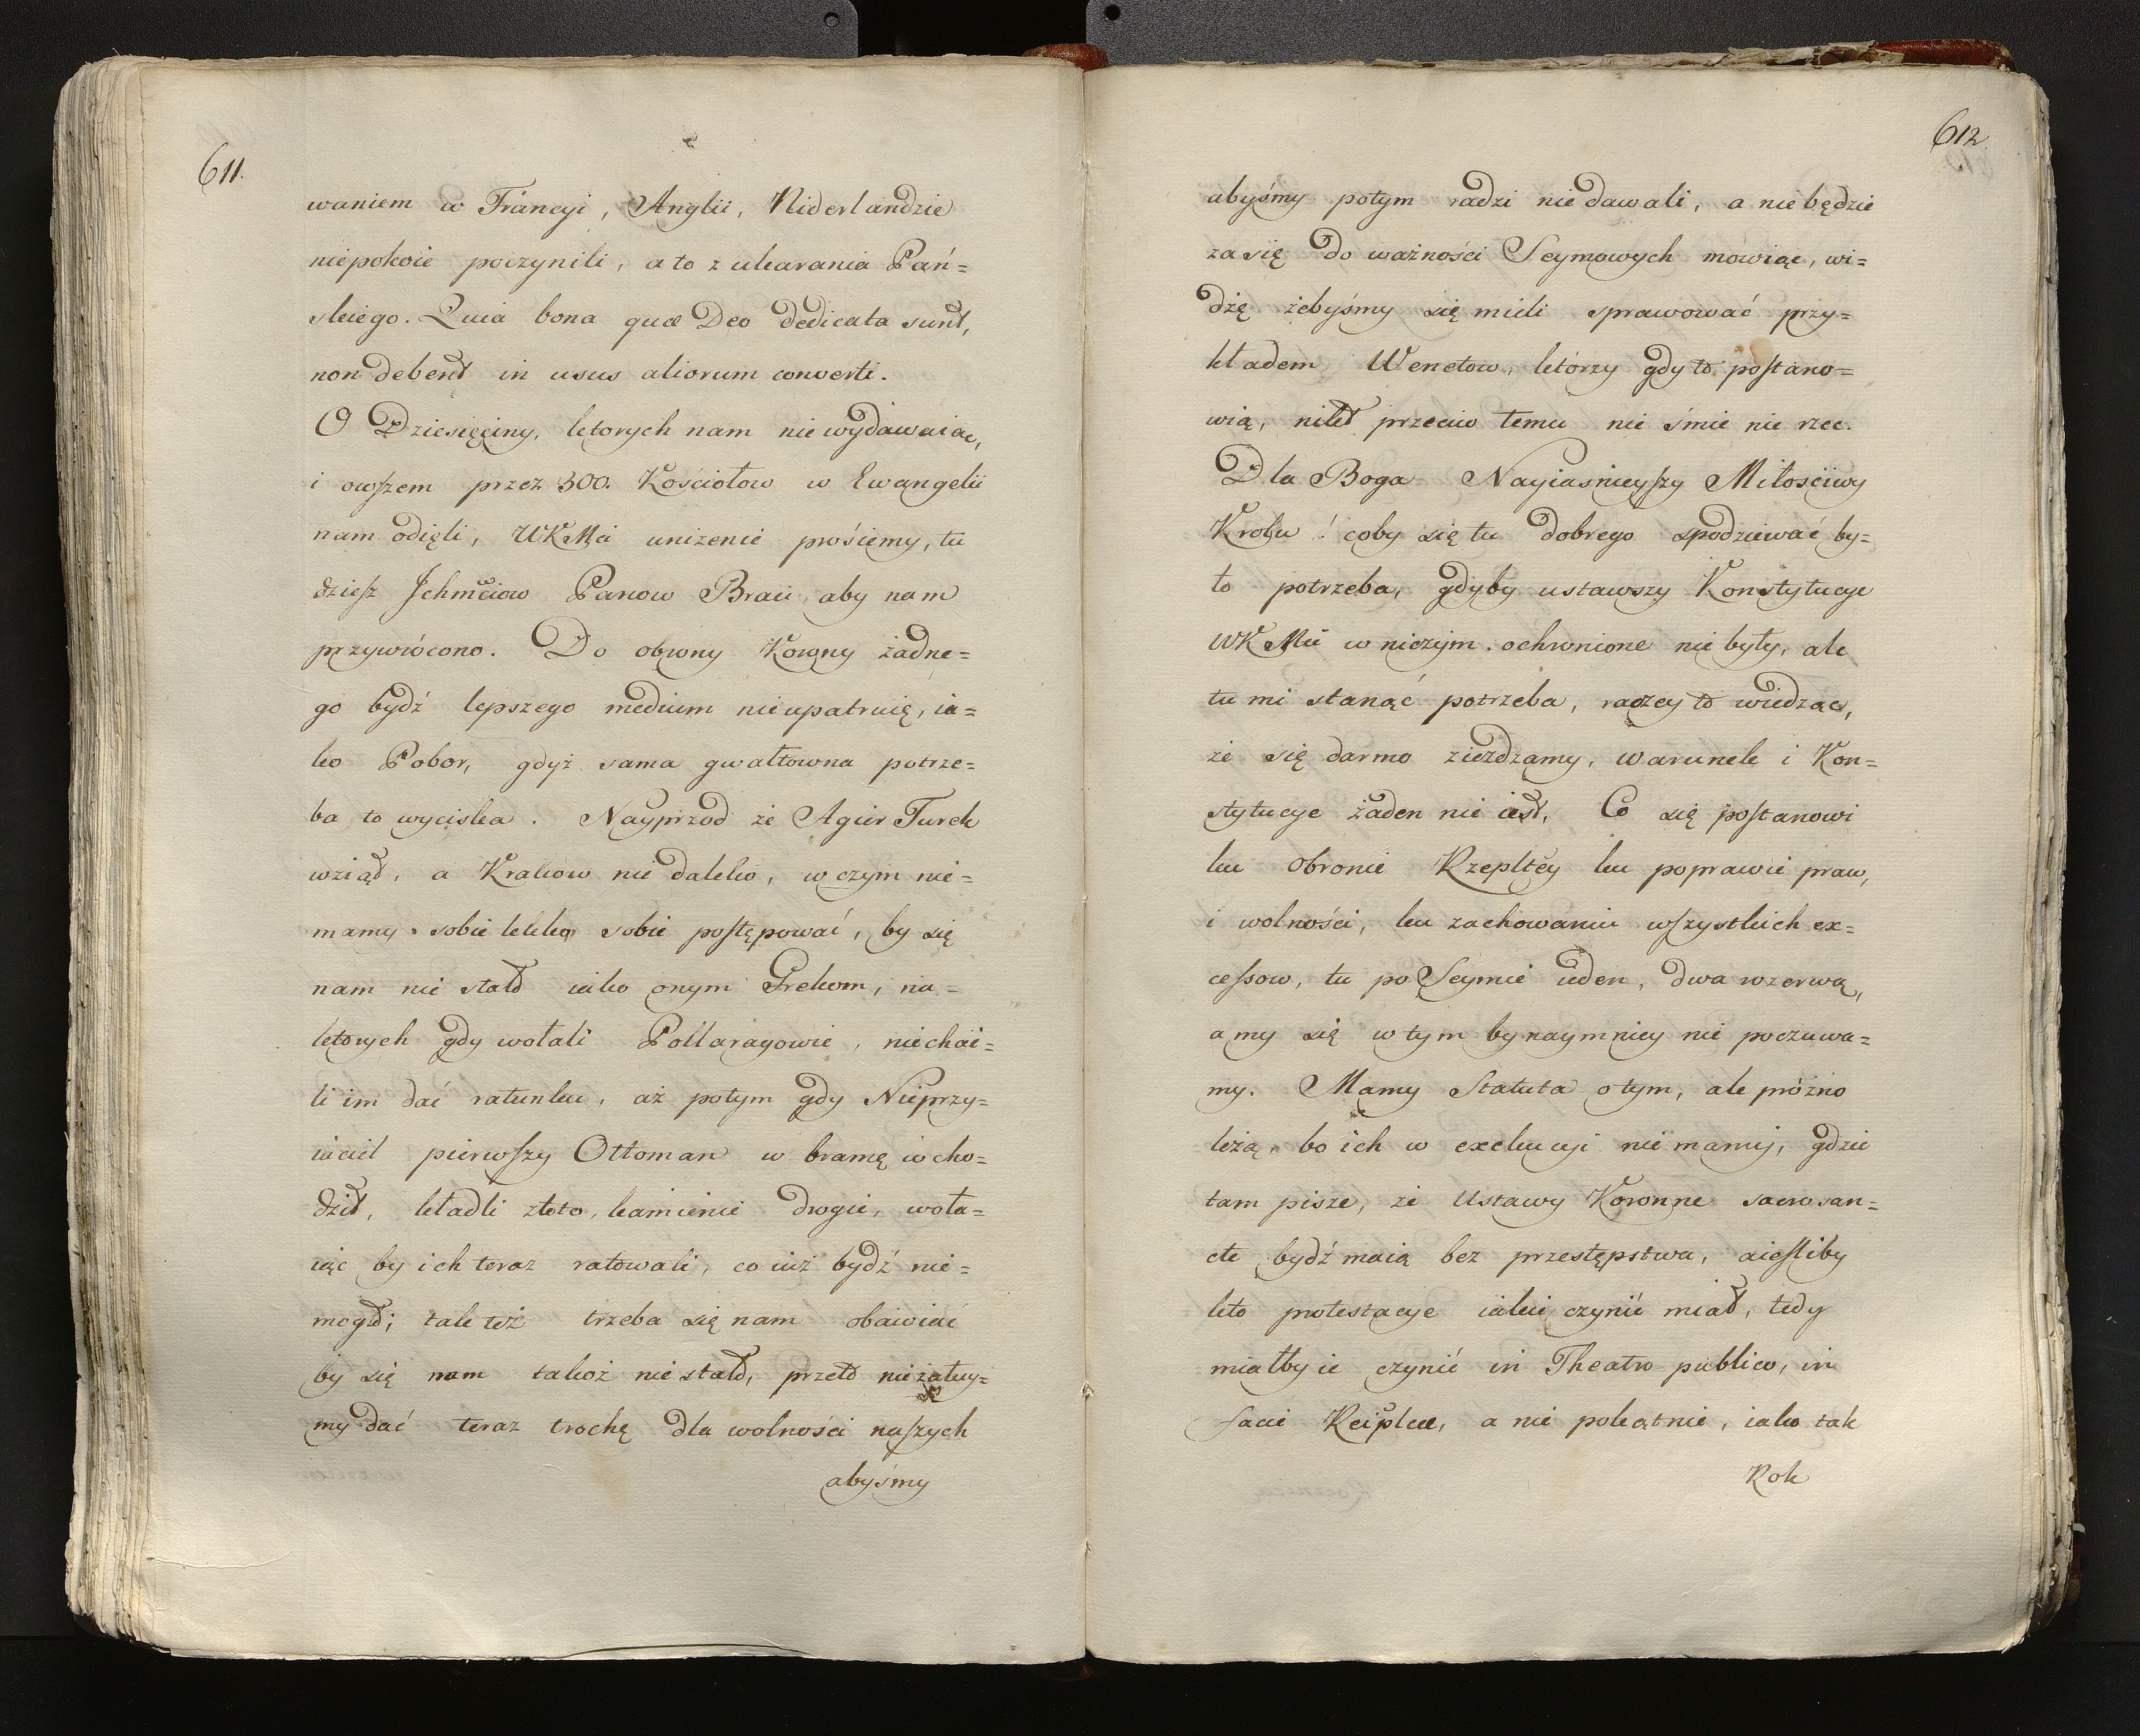 611.
waniem w Francyi, Anglii, Niderlandzie
niepokoie poczynili, a to z ukarania Pań=
skiego. Quia bona quæ Deo dedicata sunt,
non debent in usus aliorum converti.
O Dziesięciny, ktorych nam nie wydawaiąc,
i owszem przez 300. Kościołow w Ewangelii
nam odięli, WKMci unizenie prośiemy, tu
dziesz Jchmciow Panow Braci, aby nam
przywrócono. Do obrony Koronny żadne=
go bydź lepszego medium nie upatruię, ia=
ko Pobor, gdyż sama gwałtowna potrze=
ba to wyciska. Nayprzod że Agier Turek
wziął, a Krakow nie daleko, w czym nie=
mamy sobie lekko sobie postępować, by się
nam nie stało iako onym Grekom, na=
ktorych gdy wołali niechcie=
li im dać ratunku, aż potym gdy Nieprzy=
iaciel pierwszy Ottoman w bramę wcho=
dził, kładli złoto, kamienie drogie, woła=
iąc by ich teraz ratowali, co iuż bydź nie=
mogło; tak też trzeba się nam obawiać
by się nam takoż nie stało, przeto nie żałuy=
my dać teraz trochę dla wolności naszych
abyśmy
612.
abyśmy potym radzi nie dawali, a nie będzie
zasię do ważności Seymowych mówiąc, wi=
dzę żebyśmy się mieli sprawować przy=
kładem Wenetow, którzy gdy to postano=
wią, nikt przeciw temu nie śmie nie rzec.
Dla Boga Nayiasnieyszy Miłosciwy
Krolu! coby się tu dobrego spodziewać by=
ło potrzeba, gdyby ustawszy Konstytucye
WKMci w niczym ochronione nie były, ale
tu mi stanąć potrzeba, raczey to wiedząc,
że się darmo ziezdzamy, warunek i Kon=
stytucye żaden nie iest. Co się postanowi
ku obronie Rzepltey ku poprawie praw,
i wolności, ku zachowaniu wszystkich ex=
cessow, tu po Seymie ieden, dwa rozerwą,
a my się w tym bynaymniey nie poczuwa=
my. Mamy Statuta o tym, ale próżno
leżą, bo ich w exekucyi nie mamy, gdzie
tam pisze, że Ustawy Koronne sacrosan=
cte bydź maią bez przestępstwa, aiesliby
kto protestacye iakie czynić miał, tedy
miałby ie czynić in Theatro publico, in
facie Reiplcæ, a nie pokątnie, iako tak
Rok